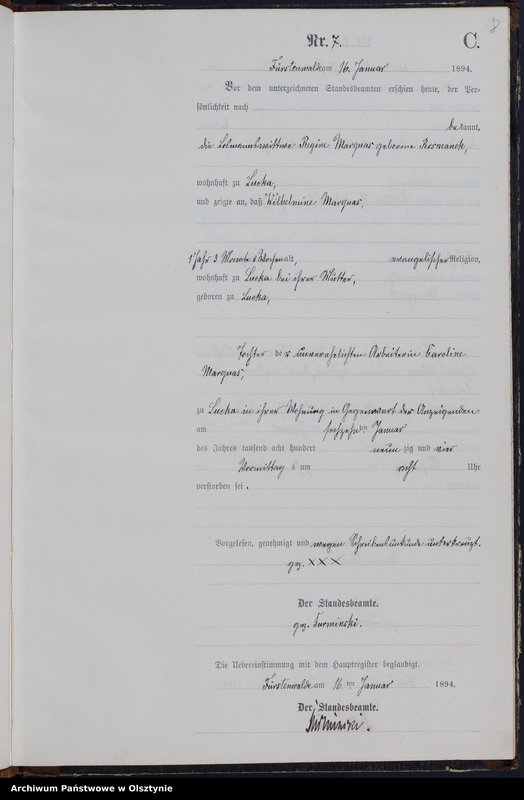 8
Nr. 7. C.
Fürstenwalde am 16. Januar 1894.
Vor dem unterzeichneten Standesbeamten erschien heute, der Per-
sönlichkeit nach
bekannt,
die Losmannswittwe Regine Marquas geborene
wohnhaft zu Lucka,
und zeigte an, daß Wilhelmine Marquas,
1 Jahr 3 Monate Wochen alt, evangelischer Religion,
wohnhaft zu Lucka bei ihrer Mutter,
geboren zu Lucka,
Tochter der unverehelichten Arbeiterin Caroline
Marquas,
zu Lucka in ihrer Wohnung in Gegenwart der Anzeigenden
am sechzehnten Januar
des Jahres tausend acht hundert neunzig und vier
Vormittags um acht Uhr
verstorben sei.
Vorgelesen, genehmigt und wegen Schreibensunkunde unterkreuzt.
gez. XXX
Der Standesbeamte.
gez.
Die Uebereinstimmung mit dem Hauptregister beglaubigt.
Fürstenwalde am 16ten Januar 1894.
Der Standesbeamte.
Archiwum Państwowe w Olsztynie